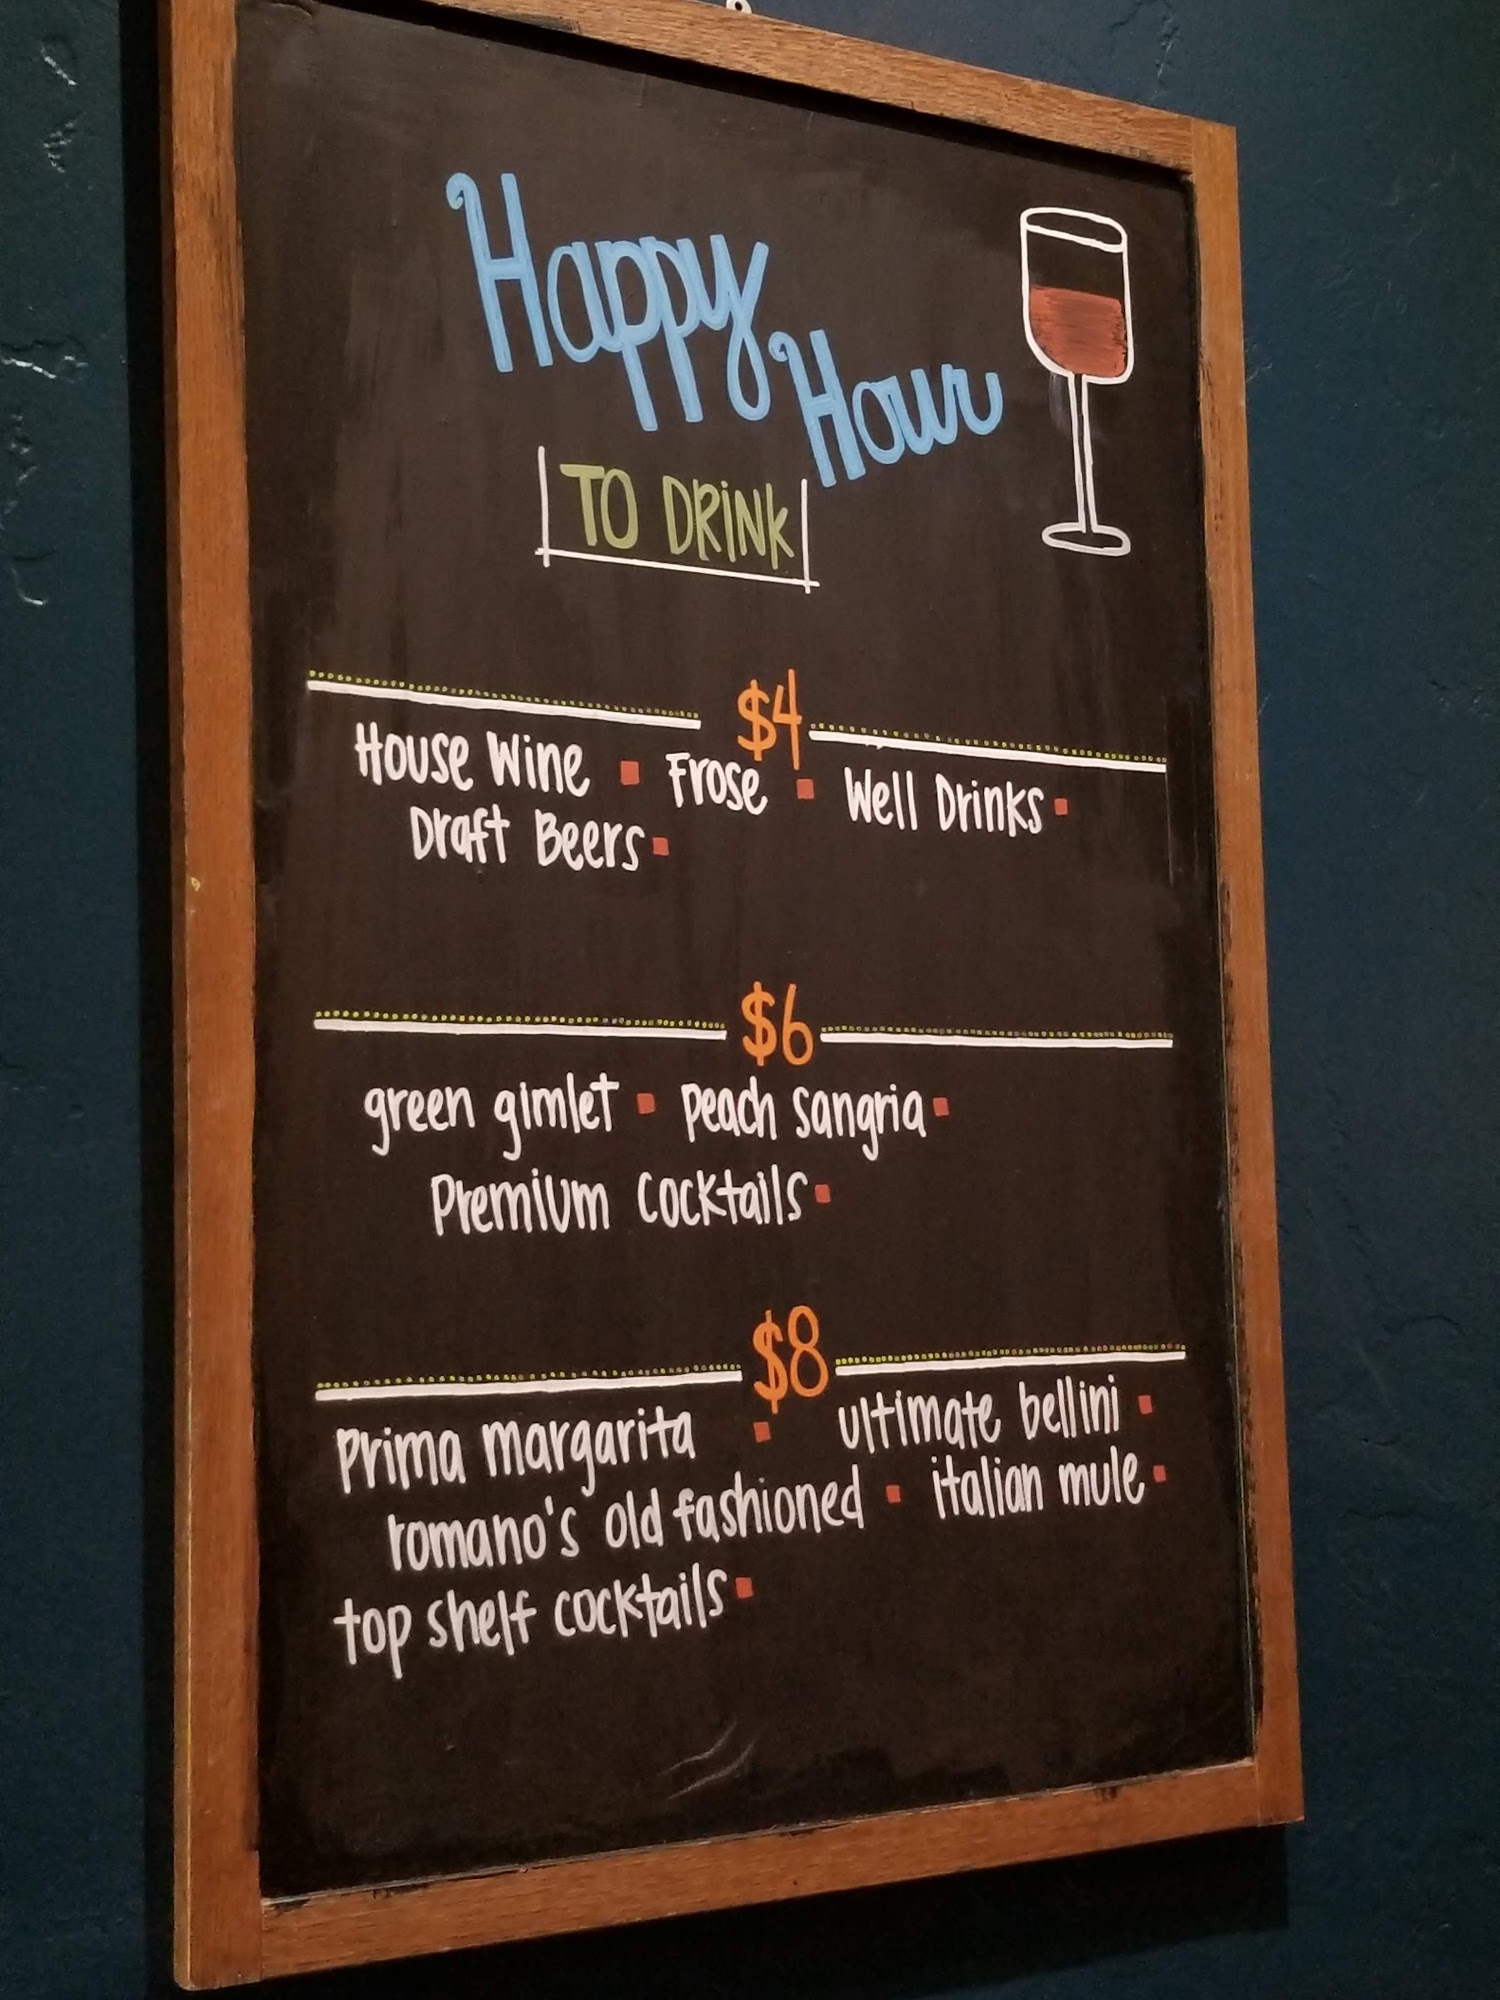 Happy
Hour
TO DRINK
$4
House Wine ▪ Frose ▪ Well Drinks ▪
Draft Beers ▪
$6
green gimlet ▪ peach sangria ▪
Premium cocktails ▪
$8
Prima margarita ▪ ultimate bellini ▪
romano's old fashioned ▪ italian mule ▪
top shelf cocktails ▪